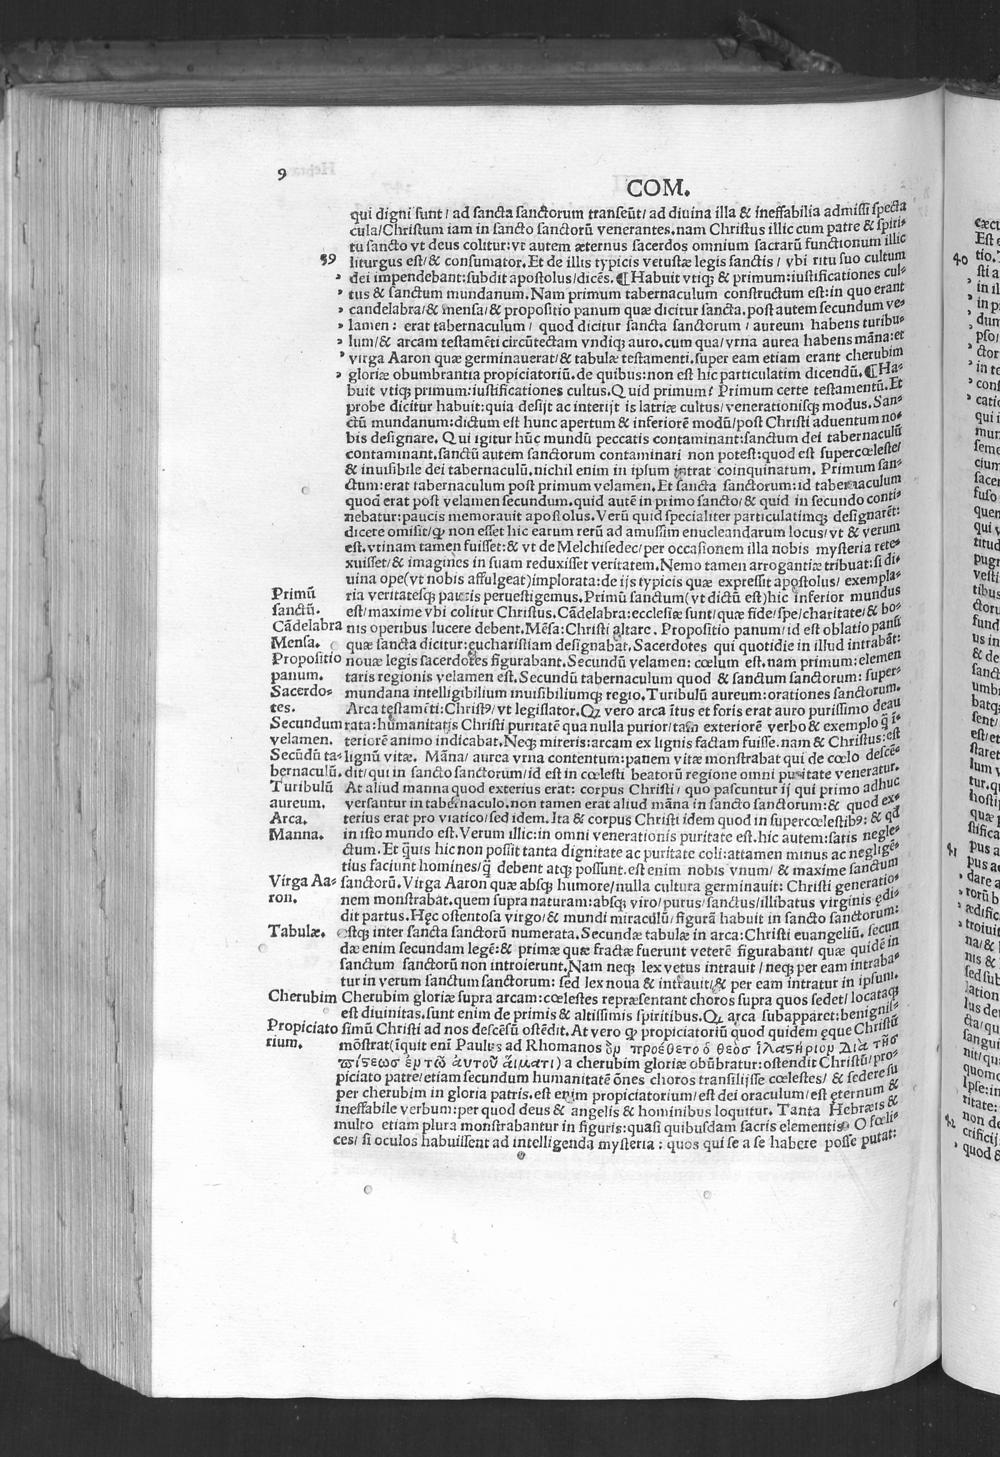 9
COM.
qui digni sunt/ ad sancta sanctorum transeūt/ ad diuina illa & ineffabilia admissi specta
cula/Christum iam in sancto sanctorū venerantes.nam Christus illic cum patre & spiri-
tu sancto vt deus colitur:vt autem æternus sacerdos omnium sacrarū functionum illic
39 liturgus est/& consumator.Et de illis typicis vetustæ legis sanctis / vbi ritu suo cultum
dei impendebant:subdit apostolus/dicēs.¶Habuit vtiq; & primum:iustificationes cul-
tus & sanctum mundanum.Nam primum tabernaculum constructum est:in quo erant
candelabra/& mensa/& propositio panum quæ dicitur sancta.post autem secundum ve-
lamen: erat tabernaculum/ quod dicitur sancta sanctorum / aureum habens turibu-
lum/& arcam testamēti circūtectam vndiq; auro.cum qua/vrna aurea habens māna:et
virga Aaron quæ germinauerat/& tabulæ testamenti.super eam etiam erant cherubim
gloriæ obumbrantia propiciatoriū.de quibus:non est hic particulatim dicendū.¶Ha-
buit vtiq; primum:iustificationes cultus.Quid primum? Primum certe testamentū.Et
probe dicitur habuit:quia desijt ac interijt is latriæ cultus/venerationisq; modus.San-
ctū mundanum:dictum est hunc apertum & inferiorē modū/post Christi aduentum no-
bis designare. Qui igitur hūc mundū peccatis contaminant:sanctum dei tabernaculū
contaminant.sanctū autem sanctorum contaminari non potest:quod est supercœleste/
& inuisibile dei tabernaculū.nichil enim in ipsum intrat coinquinatum. Primum san-
ctum:erat tabernaculum post primum velamen.Et sancta sanctorum:id tabernaculum
quod erat post velamen secundum.quid autē in primo sancto/& quid in secundo conti-
nebatur:paucis memorauit apostolus.Verū quid specialiter particulatimq; designarēt:
dicere omisit/ꝙ non esset hic earum rerū ad amussim enucleandarum locus/vt & verum
est.vtinam tamen fuisset:& vt de Melchisedec/per occasionem illa nobis mysteria rete-
xuisset/& imagines in suam reduxisset veritatem.Nemo tamen arrogantiæ tribuat:si di-
uina ope(vt nobis affulgeat)implorata:de ijs typicis quæ expressit apostolus/ exempla-
Primū ria veritatesq; paucis peruestigemus.Primū sanctum(vt dictū est)hic inferior mundus
sanctū. est/maxime vbi colitur Christus.Cādelabra:ecclesiæ sunt/quæ fide/spe/charitate/& bo-
Cādelabra nis operibus lucere debent.Mēsa:Christi altare. Propositio panum/id est oblatio panū
Mensa. quæ sancta dicitur:eucharistiam designabat.Sacerdotes qui quotidie in illud intrabāt:
Propositio nouæ legis sacerdotes figurabant.Secundū velamen: cœlum est.nam primum:elemen
panum. taris regionis velamen est.Secundū tabernaculum quod & sanctum sanctorum: super-
Sacerdo- mundana intelligibilium inuisibiliumq; regio.Turibulū aureum:orationes sanctorum.
tes. Arca testamēti:Christꝰ/vt legislator.Qꝫ vero arca ītus et foris erat auro purissimo deau
Secundum rata:humanitatis Christi puritatē qua nulla purior/tam exteriorē verbo & exemplo q̄ ī-
velamen. teriorē animo indicabat.Neq; mireris:arcam ex lignis factam fuisse.nam & Christus:est
Secūdū ta- lignū vitæ. Māna/ aurea vrna contentum:panem vitæ monstrabat qui de cœlo descē-
bernaculū. dit/qui in sancto sanctorum/id est in cœlesti beatorū regione omni puritate veneratur.
Turibulū At aliud manna quod exterius erat: corpus Christi/ quo pascuntur ij qui primo adhuc
aureum. versantur in tabernaculo.non tamen erat aliud māna in sancto sanctorum:& quod ex-
Arca. terius erat pro viatico/sed idem.Ita & corpus Christi idem quod in supercœlestibꝰ: & qd̄
Manna. in isto mundo est.Verum illic:in omni venerationis puritate est.hic autem:satis negle-
ctum.Et q̄uis hic non possit tanta dignitate ac puritate coli:attamen minus ac negligē-
tius faciunt homines/q̄ debent atq; possunt.est enim nobis vnum/ & maxime sanctum
Virga Aa- sanctorū.Virga Aaron quæ absq; humore/nulla cultura germinauit: Christi generatio-
ron. nem monstrabat.quem supra naturam:absq; viro/purus/sanctus/illibatus virginis ędi-
dit partus.Hęc ostentosa virgo/& mundi miraculū/figurā habuit in sancto sanctorum:
Tabulæ. estq; inter sancta sanctorū numerata.Secundæ tabulæ in arca:Christi euangeliū. secun
dæ enim secundam legē:& primæ quæ fractæ fuerunt veterē figurabant/ quæ quidē in
sanctum sanctorū non introierunt.Nam neq; lex vetus intrauit / neq; per eam intraba-
tur in verum sanctum sanctorum: sed lex noua & intrauit/& per eam intratur in ipsum.
Cherubim Cherubim gloriæ supra arcam:cœlestes repræsentant choros supra quos sedet/ locataq;
est diuinitas.sunt enim de primis & altissimis spiritibus.Qꝫ arca subapparet:benignis-
Propiciato simū Christi ad nos descēsū ostēdit.At vero ꝙ propiciatoriū quod quidem ęque Christū
rium. mōstrat(iquit enī Paulus ad Rhomanos ὃν προέθετο ὁ θεὸσ ἱλαστήριον διὰ τῆσ
πίστεωσ ἐν τῷ ἀυτοῦ ἅιματι) a cherubim gloriæ obūbratur:ostendit Christū/pro-
piciato patre/etiam secundum humanitatē ōnes choros transilijsse cœlestes/ & sedere su
per cherubim in gloria patris.est enim propiciatorium/est dei oraculum/est ęternum &
ineffabile verbum:per quod deus & angelis & hominibus loquitur. Tanta Hebræis &
multo etiam plura monstrabantur in figuris:quasi quibusdam sacris elementis. O fœli-
ces/ si oculos habuissent ad intelligenda mysteria : quos qui se a se habere posse putat: